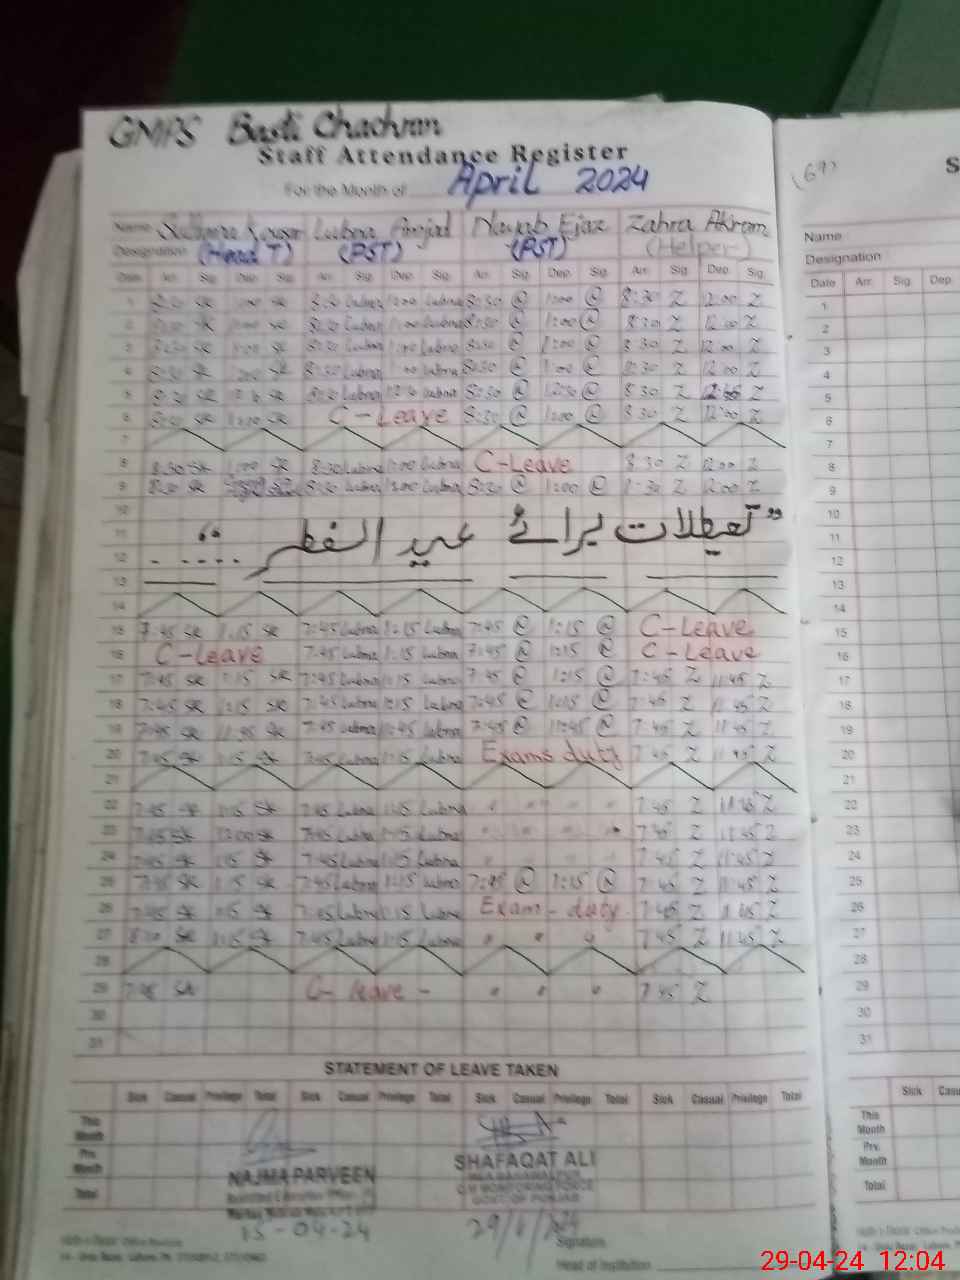 GMPS Basti Chachran
Staff Attendance Register
For the Month of April 2024
(69)
Name Lubna Amjad Nayab Ejaz Zahra Akram
Designation (Head T) (PST) (PST) (Helper)
Date Arr. Sig. Dep. Sig. Arr. Sig. Dep. Sig. Arr. Sig. Dep. Sig. Arr. Sig. Dep. Sig.
1 8:30 SK 1:00 SK 8:30 Lubna 1:00 Lubna 8:30 @ 1:00 @ 8:30 Z 12:00 Z
2 8:30 SK 1:00 SK 8:30 Lubna 1:00 Lubna 8:30 @ 1:00 @ 8:30 Z 12:00 Z
3 8:30 SK 1:00 SK 8:30 Lubna 1:00 Lubna 8:30 @ 1:00 @ 8:30 Z 12:00 Z
4 8:30 SK 1:00 SK 8:30 Lubna 1:00 Lubna 8:30 @ 1:00 @ 8:30 Z 12:00 Z
5 8:30 SK SK 8:30 Lubna Lubna 8:30 @ 12:30 @ 8:30 Z Z
6 8:30 SK 1:00 SK C-Leave 8:30 @ 1:00 @ 8:30 Z 12:00 Z
7
8 8:30 SK 1:00 SK 8:30 Lubna 1:00 Lubna C-Leave 8:30 Z 12:00 Z
9 8:30 SK 8:30 Lubna 1:00 Lubna 8:30 @ 1:00 @ 8:30 Z 12:00 Z
10
11 "تعطیلات برائے عید الفطر"
12
13
14
15 7:45 SK 1:15 SK 7:45 Lubna 1:15 Lubna 7:45 @ 1:15 @ C-Leave
16 C-Leave 7:45 Lubna 1:15 Lubna 7:45 @ 1:15 @ C-Leave
17 7:45 SK 1:15 SK 7:45 Lubna 1:15 Lubna 7:45 @ 1:15 @ 7:45 Z 11:45 Z
18 7:45 SK 1:15 SK 7:45 Lubna 1:15 Lubna 7:45 @ 1:15 @ 7:45 Z 11:45 Z
19 7:45 SK 11:45 SK 7:45 Lubna 11:45 Lubna 7:45 @ 11:45 @ 7:45 Z 11:45 Z
20 7:45 SK 1:15 SK 7:45 Lubna 1:15 Lubna Exams duty 7:45 Z 11:45 Z
21
22 7:45 SK 1:15 SK 7:45 Lubna 1:15 Lubna " " " " 7:45 Z 11:45 Z
23 7:45 SK 12:00 SK 7:45 Lubna 1:15 Lubna " " " " 7:45 Z 11:45 Z
24 7:45 SK 1:15 SK 7:45 Lubna 1:15 Lubna " " " " 7:45 Z 11:45 Z
25 7:45 SK 1:15 SK 7:45 Lubna 1:15 Lubna 7:45 @ 1:15 @ 7:45 Z 11:45 Z
26 7:45 SK 1:15 SK 7:45 Lubna 1:15 Lubna Exam - duty 7:45 Z 11:45 Z
27 SK 1:15 SK 7:45 Lubna 1:15 Lubna " " " 7:45 Z 11:45 Z
28
29 7:45 SK C- leave - " " " 7:45 Z
30
31
STATEMENT OF LEAVE TAKEN
Sick Casual Privilege Total Sick Casual Privilege Total Sick Casual Privilege Total Sick Casual Privilege Total
This Month
Prv. Month
Total
NAJMA PARVEEN
15-04-24
SHAFAQAT ALI
Signature
Head of Institution
S
Name
Designation
Date Arr. Sig. Dep.
1
2
3
4
5
6
7
8
9
10
11
12
13
14
15
16
17
18
19
20
21
22
23
24
25
26
27
28
29
30
31
Sick
This Month
Prv. Month
Total
29-04-24 12:04